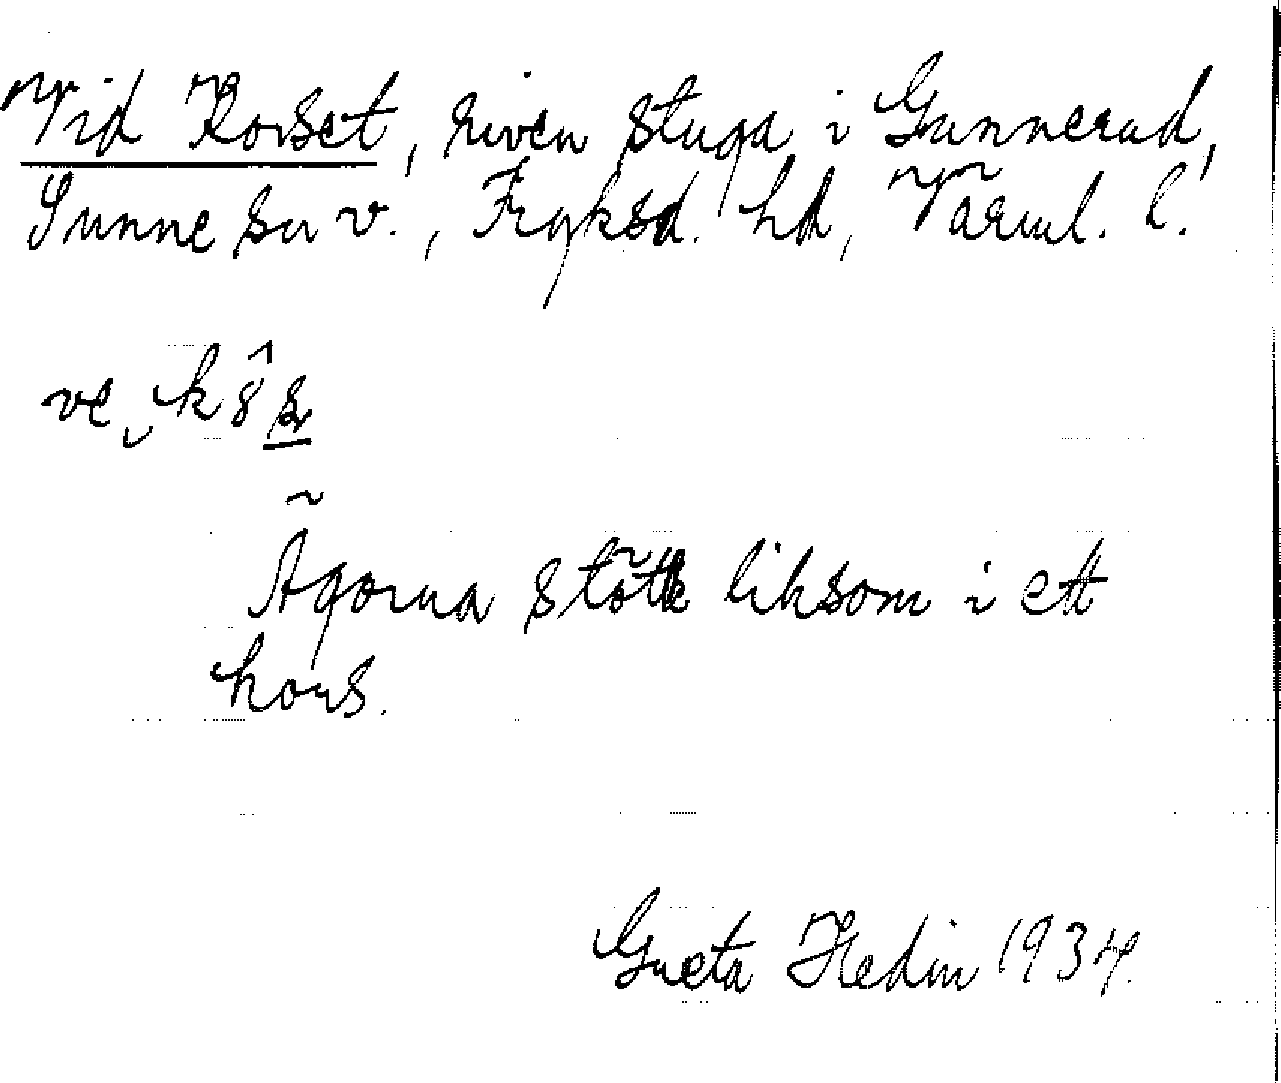 Vid Korset, riven stuga i Gunnerud,
Sunne sn v., Fryksd. hd, Värml. l.
Ägorna stötte liksom i ett
kors.
Greta Hedin 1934.